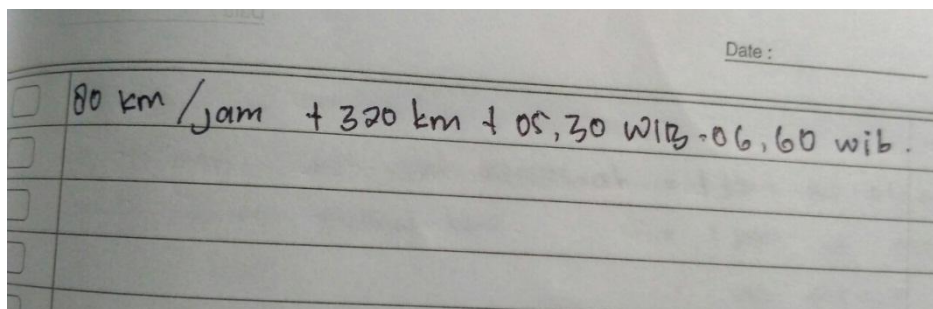 Date :
80 km / jam + 320 km + 05,30 WIB - 06,60 wib.